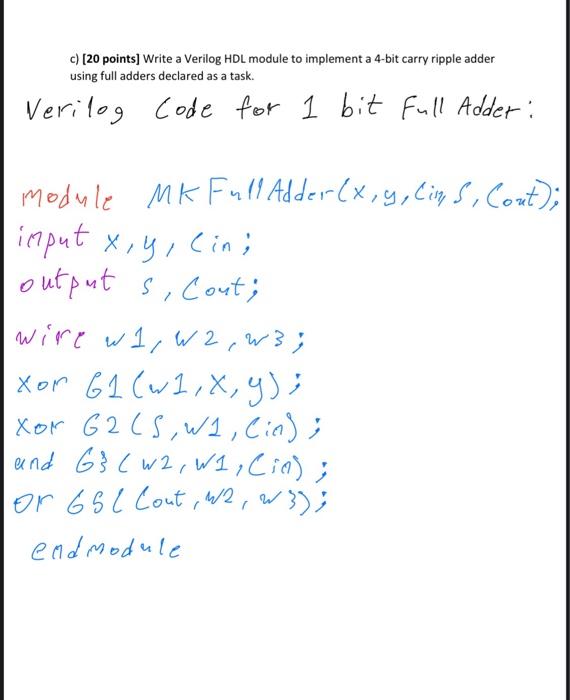 c) [20 points] Write a Verilog HDL module to implement a 4-bit carry ripple adder
using full adders declared as a task.
Verilog Code for 1 bit Full Adder:
module MKFullAdder(x,y,Cin,S,Cout);
input x,y,Cin;
output S,Cout;
wire w1,w2,w3;
xor G1(w1,x,y);
xor G2(S,w1,Cin);
and G3(w2,w1,Cin);
or G5(Cout,w2,w3);
endmodule